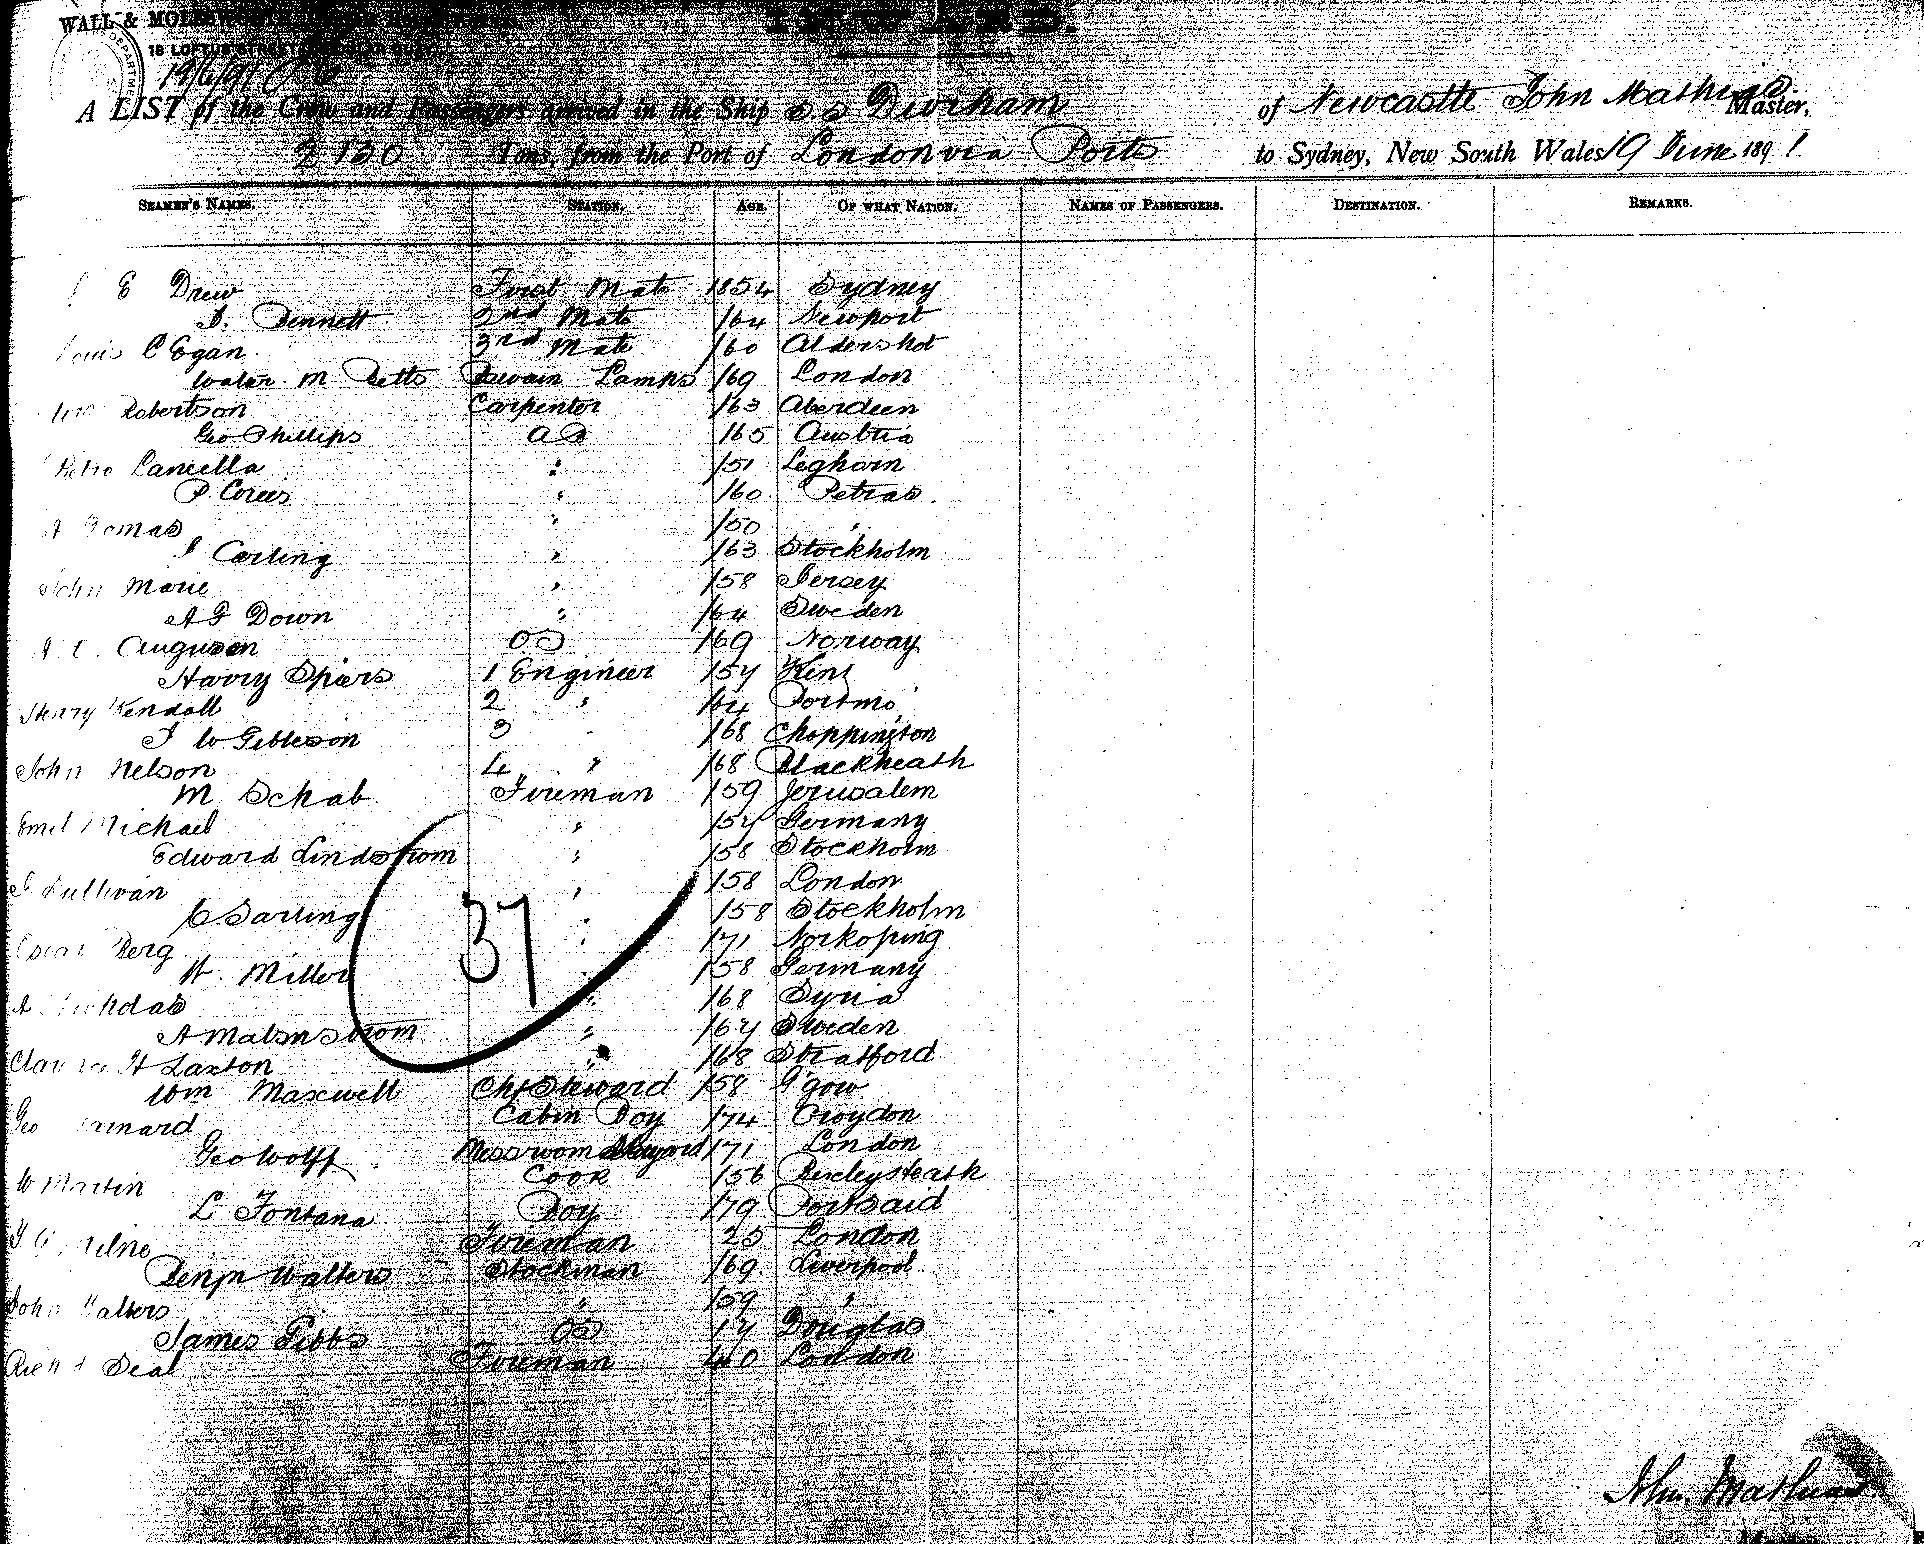 WALL &
18 LOFTUS STREET
19/6/91
A LIST of the Crew and Passengers arrived in the Ship ss Durham of Newcastle John Master,
2130 Tons, from the Port of London via Ports to Sydney, New South Wales 19 June 1891
SEAMEN'S NAMES. STATION. AGE. OF WHAT NATION. NAMES OF PASSENGERS. DESTINATION. REMARKS.
E Drew First Mate 1854 Sydney
Bennett 2nd Mate /64 Newport
Louis C Egan 3rd Mate /60 Aldershot
Walter M Betts Lamps /69 London
Robertson Carpenter /63 Aberdeen
Geo Phillips AB /65 Austria
Pietro " /51 Leghorn
P. " /60 Petras
A " /50 "
Carling " /63 Stockholm
John Marie " /58 Jersey
A F Down " /64 Sweden
OS /69 Norway
Harry Spiers 1 Engineer /57 Kent
Henry Kendall 2 " /64 Portmo
3 " /68 Choppington
John Nelson 4 " /68 Blackheath
M Schab Fireman /59 Jerusalem
Emil Michael " /57 Germany
Edward Lindstrom " /58 Stockholm
Sullivan " /58 London
C Darling " /58 Stockholm
Oscar Berg " /71 Norkoping
H. Miller " /58 Germany
A " /68 Syria
A Malmstrom " /67 Sweden
H Laxton " /68 Stratford
Wm Maxwell Ch Steward /58 G'gow
Geo Cabin Boy /74 Croydon
Geo Wolff Messroom Steward /71 London
W Martin Cook /56 Bexleyheath
L Fontana Boy /79 Portsaid
Milne Fireman 25 London
Benjn Walters Stockman /69 Liverpool
John Walters " /59 "
James Gibbs OS 17 Douglas
Seal Fireman 40 London
37
John